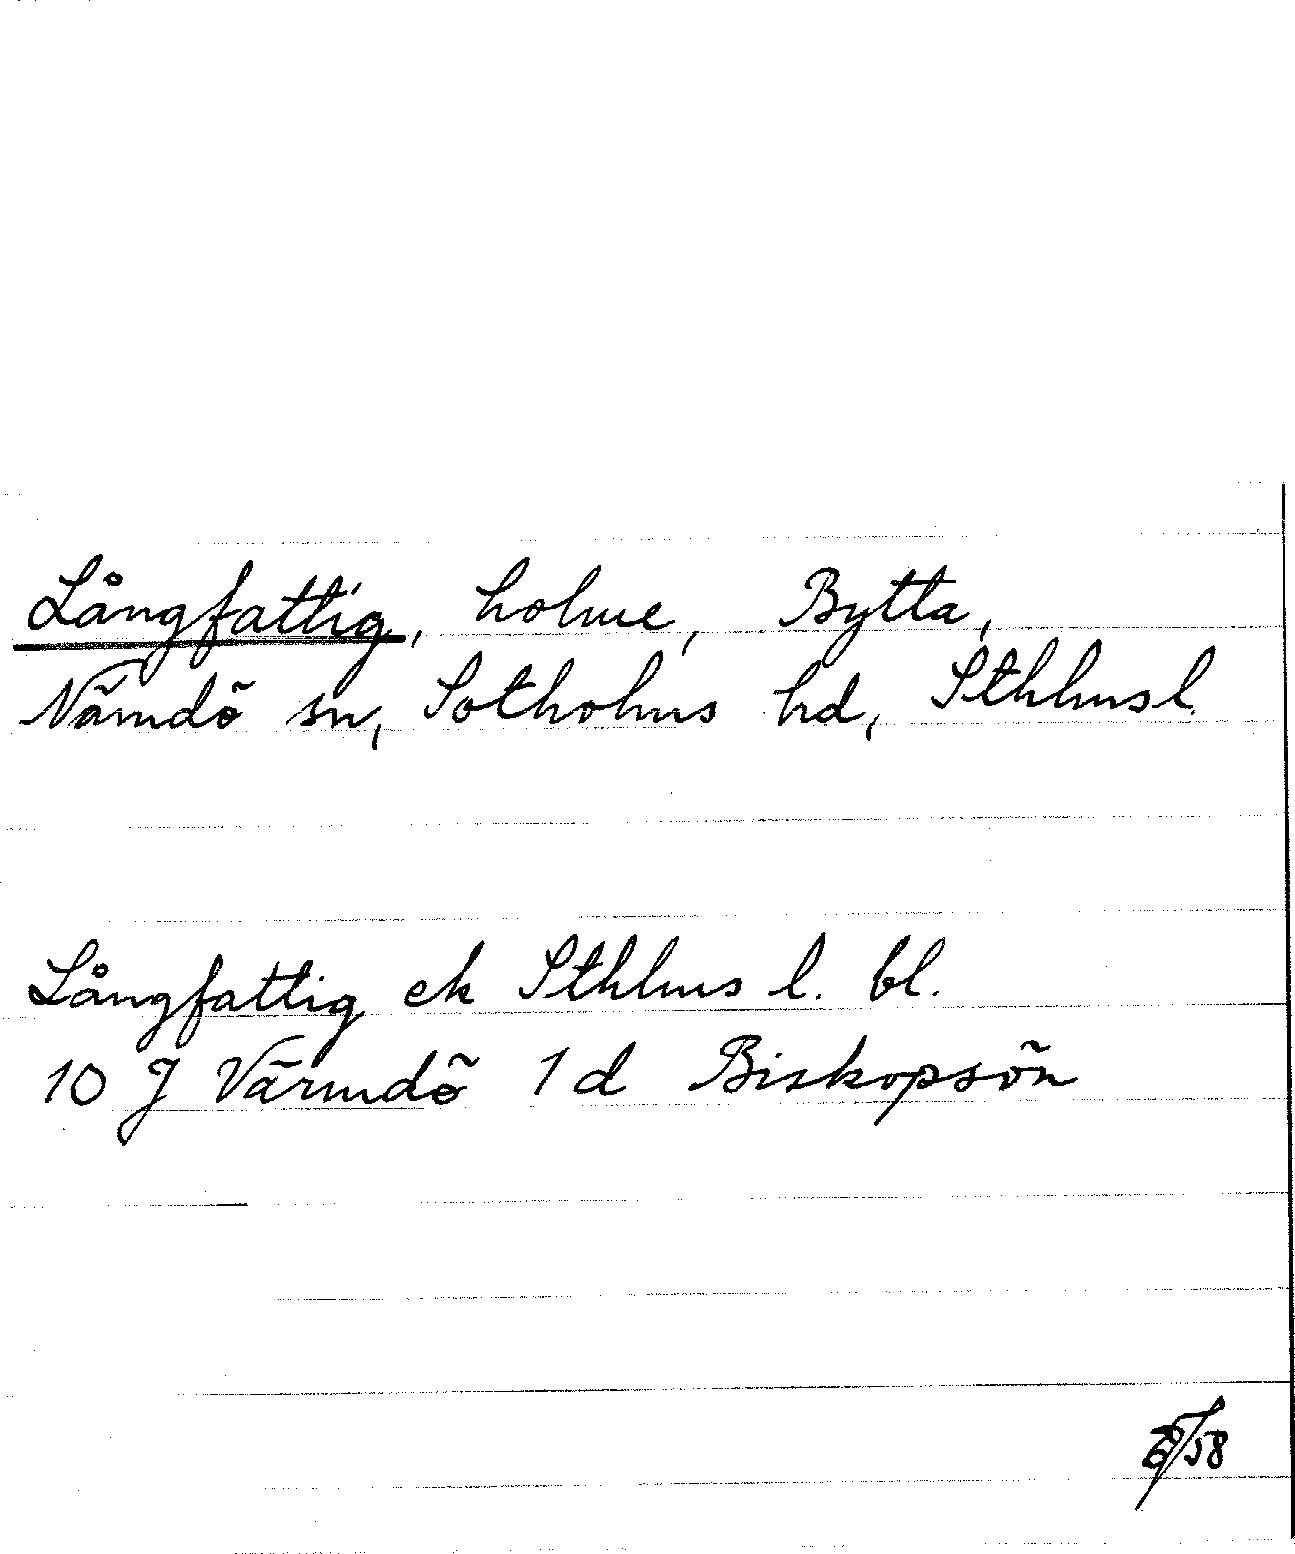 Långfattig, holme, Bytta,
Nämdö sn, Sotholms hd, Sthlmsl.
Långfattig ek Sthlms l. bl.
10 J Värmdö 1 d Biskopsön
58